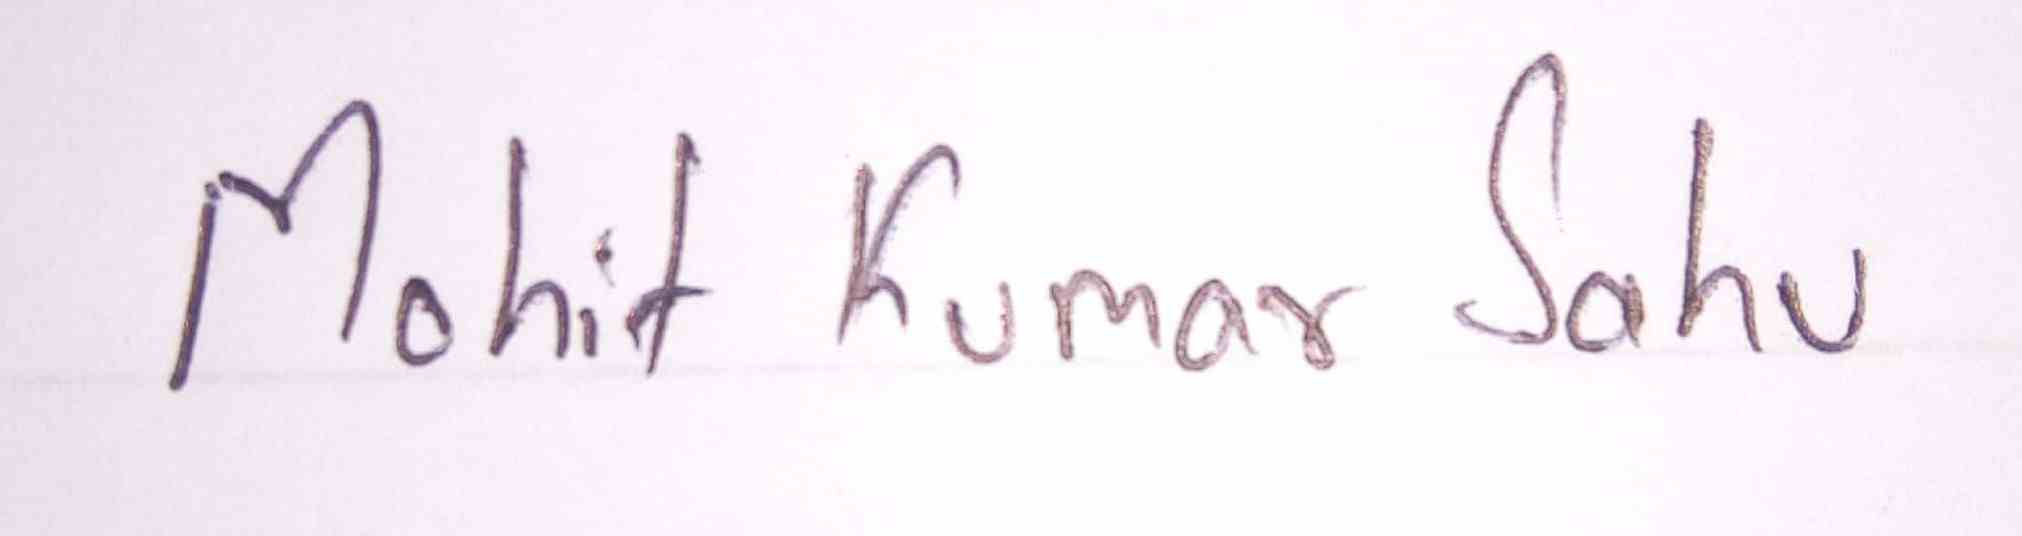 Mohit Kumar Sahu